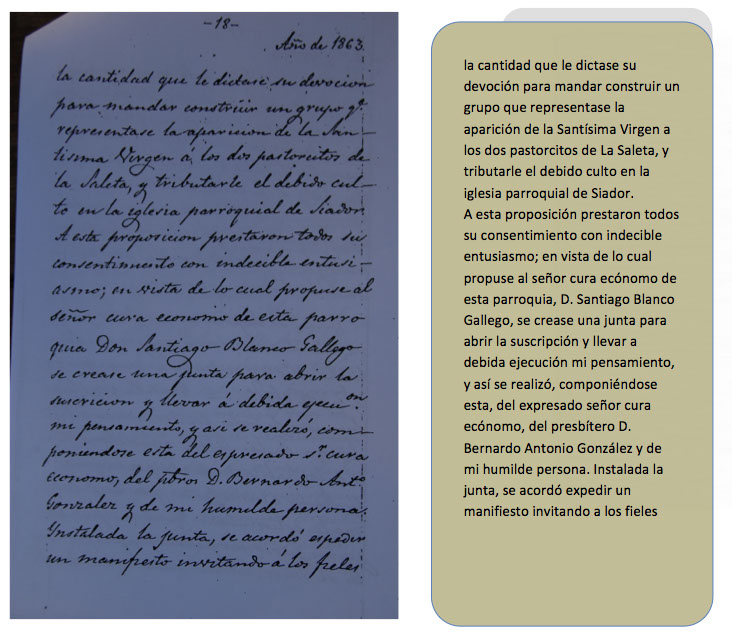 -18-
Año de 1863.
la cantidad que le dictase su devocion
para mandar construir un grupo qe.
representase la aparicion de la San-
tisima Virgen á los dos pastorcitos de
la Saleta, y tributarle el debido cul-
to en la iglesia parroquial de Siador.
A esta proposicion prestaron todos su
consentimiento con indecible entusi-
asmo; en vista de lo cual propuse al
señor cura economo de esta parro
quia Don Santiago Blanco Gallego
se crease una junta para abrir la
suscricion y llevar á debida ejecu.on
mi pensamiento, y asi se realizó, com-
poniendose esta del espresado Sr. cura
economo, del pbros D. Bernardo Anto.
Gonzalez y de mi humilde persona.
Ynstalada la junta, se acordó espedir
un manifiesto invitando á los fieles
la cantidad que le dictase su
devoción para mandar construir un
grupo que representase la
aparición de la Santísima Virgen a
los dos pastorcitos de La Saleta, y
tributarle el debido culto en la
iglesia parroquial de Siador.
A esta proposición prestaron todos
su consentimiento con indecible
entusiasmo; en vista de lo cual
propuse al señor cura ecónomo de
esta parroquia, D. Santiago Blanco
Gallego, se crease una junta para
abrir la suscripción y llevar a
debida ejecución mi pensamiento,
y así se realizó, componiéndose
esta, del expresado señor cura
ecónomo, del presbítero D.
Bernardo Antonio González y de
mi humilde persona. Instalada la
junta, se acordó expedir un
manifiesto invitando a los fieles